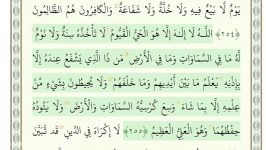 يَوْمٌ لَّا بَيْعٌ فِيهِ وَلَا خُلَّةٌ وَلَا شَفَاعَةٌ ۗ وَالْكَافِرُونَ هُمُ الظَّالِمُونَ
﴿٢٥٤﴾ اللَّـهُ لَا إِلَـٰهَ إِلَّا هُوَ الْحَيُّ الْقَيُّومُ ۚ لَا تَأْخُذُهُ سِنَةٌ وَلَا نَوْمٌ ۚ
لَّهُ مَا فِي السَّمَاوَاتِ وَمَا فِي الْأَرْضِ ۗ مَن ذَا الَّذِي يَشْفَعُ عِندَهُ إِلَّا
بِإِذْنِهِ ۚ يَعْلَمُ مَا بَيْنَ أَيْدِيهِمْ وَمَا خَلْفَهُمْ ۖ وَلَا يُحِيطُونَ بِشَيْءٍ مِّنْ
عِلْمِهِ إِلَّا بِمَا شَاءَ ۚ وَسِعَ كُرْسِيُّهُ السَّمَاوَاتِ وَالْأَرْضَ ۖ وَلَا يَئُودُهُ
حِفْظُهُمَا ۚ وَهُوَ الْعَلِيُّ الْعَظِيمُ ﴿٢٥٥﴾ لَا إِكْرَاهَ فِي الدِّينِ ۖ قَد تَّبَيَّنَ